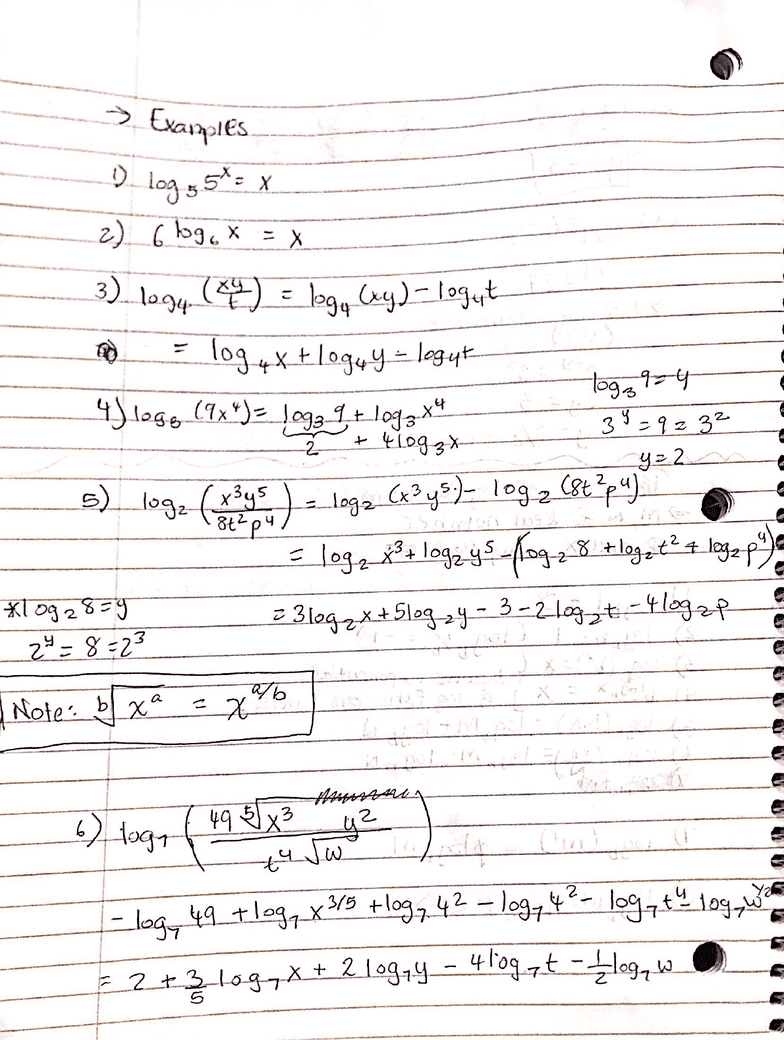 → Examples
1) log₅ 5ˣ = x
2) 6 log₆ x = x
3) log₄ (xy/t) = log₄ (xy) - log₄ t
= log₄ x + log₄ y - log₄ t
4) log₃ (9x⁴) = log₃ 9 + log₃ x⁴
2 + 4 log₃ x
log₃ 9 = y
3ʸ = 9 = 3²
y = 2
5) log₂ (x³y⁵/8t²p⁴) = log₂ (x³y⁵) - log₂ (8t²p⁴)
= log₂ x³ + log₂ y⁵ - (log₂ 8 + log₂ t² + log₂ p⁴)
*log₂ 8 = y
2ʸ = 8 = 2³
= 3 log₂ x + 5 log₂ y - 3 - 2 log₂ t - 4 log₂ p
Note: ᵇ√xᵃ = x^(a/b)
6) log₇ (49 ⁵√x³ y² / t⁴ √w)
- log₇ 49 + log₇ x^(3/5) + log₇ 4² - log₇ 4² - log₇ t⁴ - log₇ w^(1/2)
= 2 + 3/5 log₇ x + 2 log₇ y - 4 log₇ t - 1/2 log₇ w